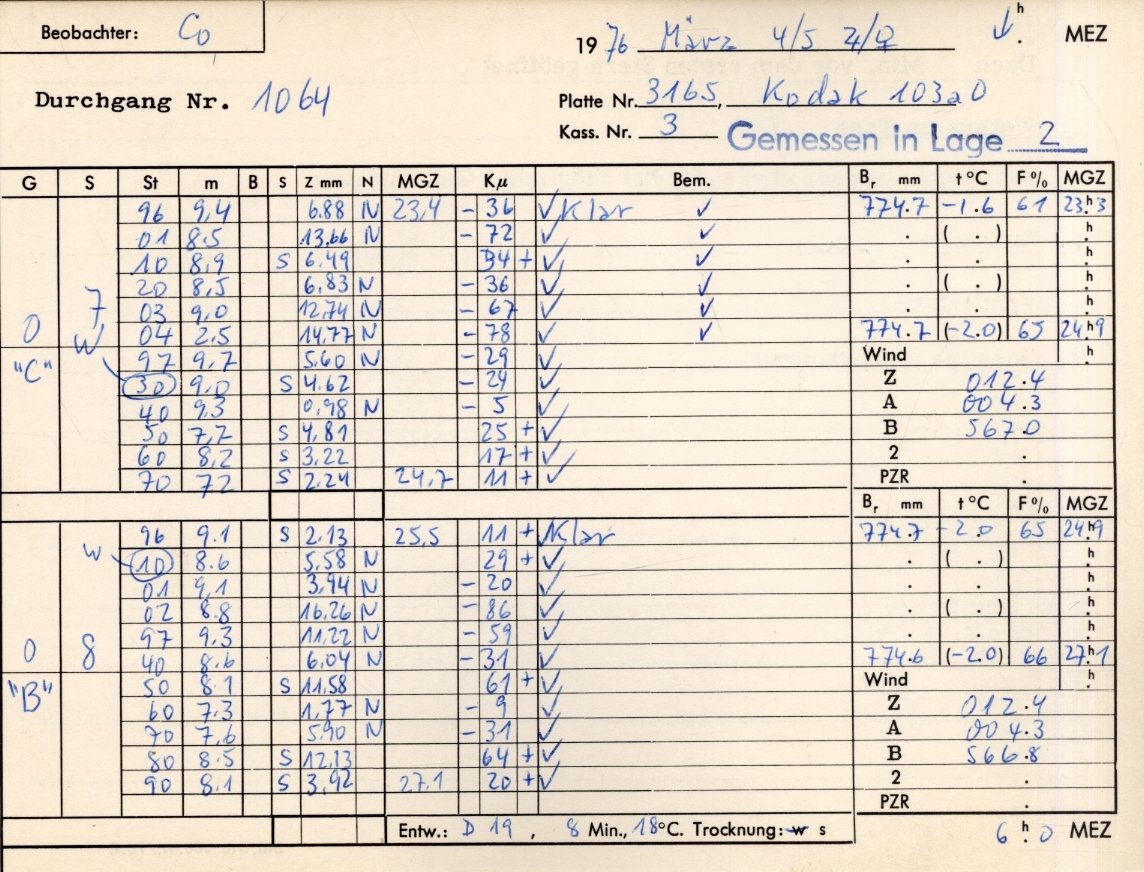 Beobachter: Co
1976 März 4/5 ♃/♀ h. MEZ
Durchgang Nr. 1064
Platte Nr. 3165, Kodak 103a0
Kass. Nr. 3 Gemessen in Lage 2
G S St m B S Z mm N MGZ Kμ Bem. Br mm t °C F % MGZ
96 9,4 6.88 N 23,4 - 36 ✓ Klar ✓ 774.7 -1.6 61 23.h3
01 8.5 13,66 N - 72 ✓ ✓ . ( . ) h.
10 8,9 S 6,49 34 + ✓ ✓ . . h.
20 8,5 6,83 N - 36 ✓ ✓ . ( . ) h.
7 03 9,0 12,74 N - 67 ✓ ✓ . . h.
0 W 04 2.5 14,77 N - 78 ✓ ✓ 774.7 (-2.0) 65 24.h9
"C" 97 9,7 5.60 N - 29 ✓ Wind h.
30 9,0 S 4.62 - 24 ✓ Z 012.4
40 9,3 0,98 N - 5 ✓ A 004.3
50 7,7 S 4,81 25 + ✓ B 567.0
60 8,2 S 3,22 17 + ✓ 2 .
70 72 S 2,24 24,7 11 + ✓ PZR
Br mm t °C F % MGZ
96 9.1 S 2.13 25,5 11 + ✓ Klar 774.7 -2.0 65 24.h9
w 10 8.6 5,58 N 29 + ✓ . ( . ) h.
01 9,1 3,94 N - 20 ✓ . . h.
02 8.8 16,26 N - 86 ✓ . ( . ) h.
97 9.3 11,22 N - 59 ✓ . . h.
0 8 40 8.6 6,04 N - 31 ✓ 774.6 (-2.0) 66 27.h1
"B" 50 8.1 S 11,58 61 + ✓ Wind h.
60 7.3 1,77 N - 9 ✓ Z 012.4
70 7,6 5,90 N - 31 ✓ A 004.3
80 8.5 S 12,13 64 + ✓ B 566.8
90 8.1 S 3,92 27.1 20 + ✓ 2 .
PZR
Entw.: D 19, 8 Min., 18°C. Trocknung: w s 6 h. 0 MEZ